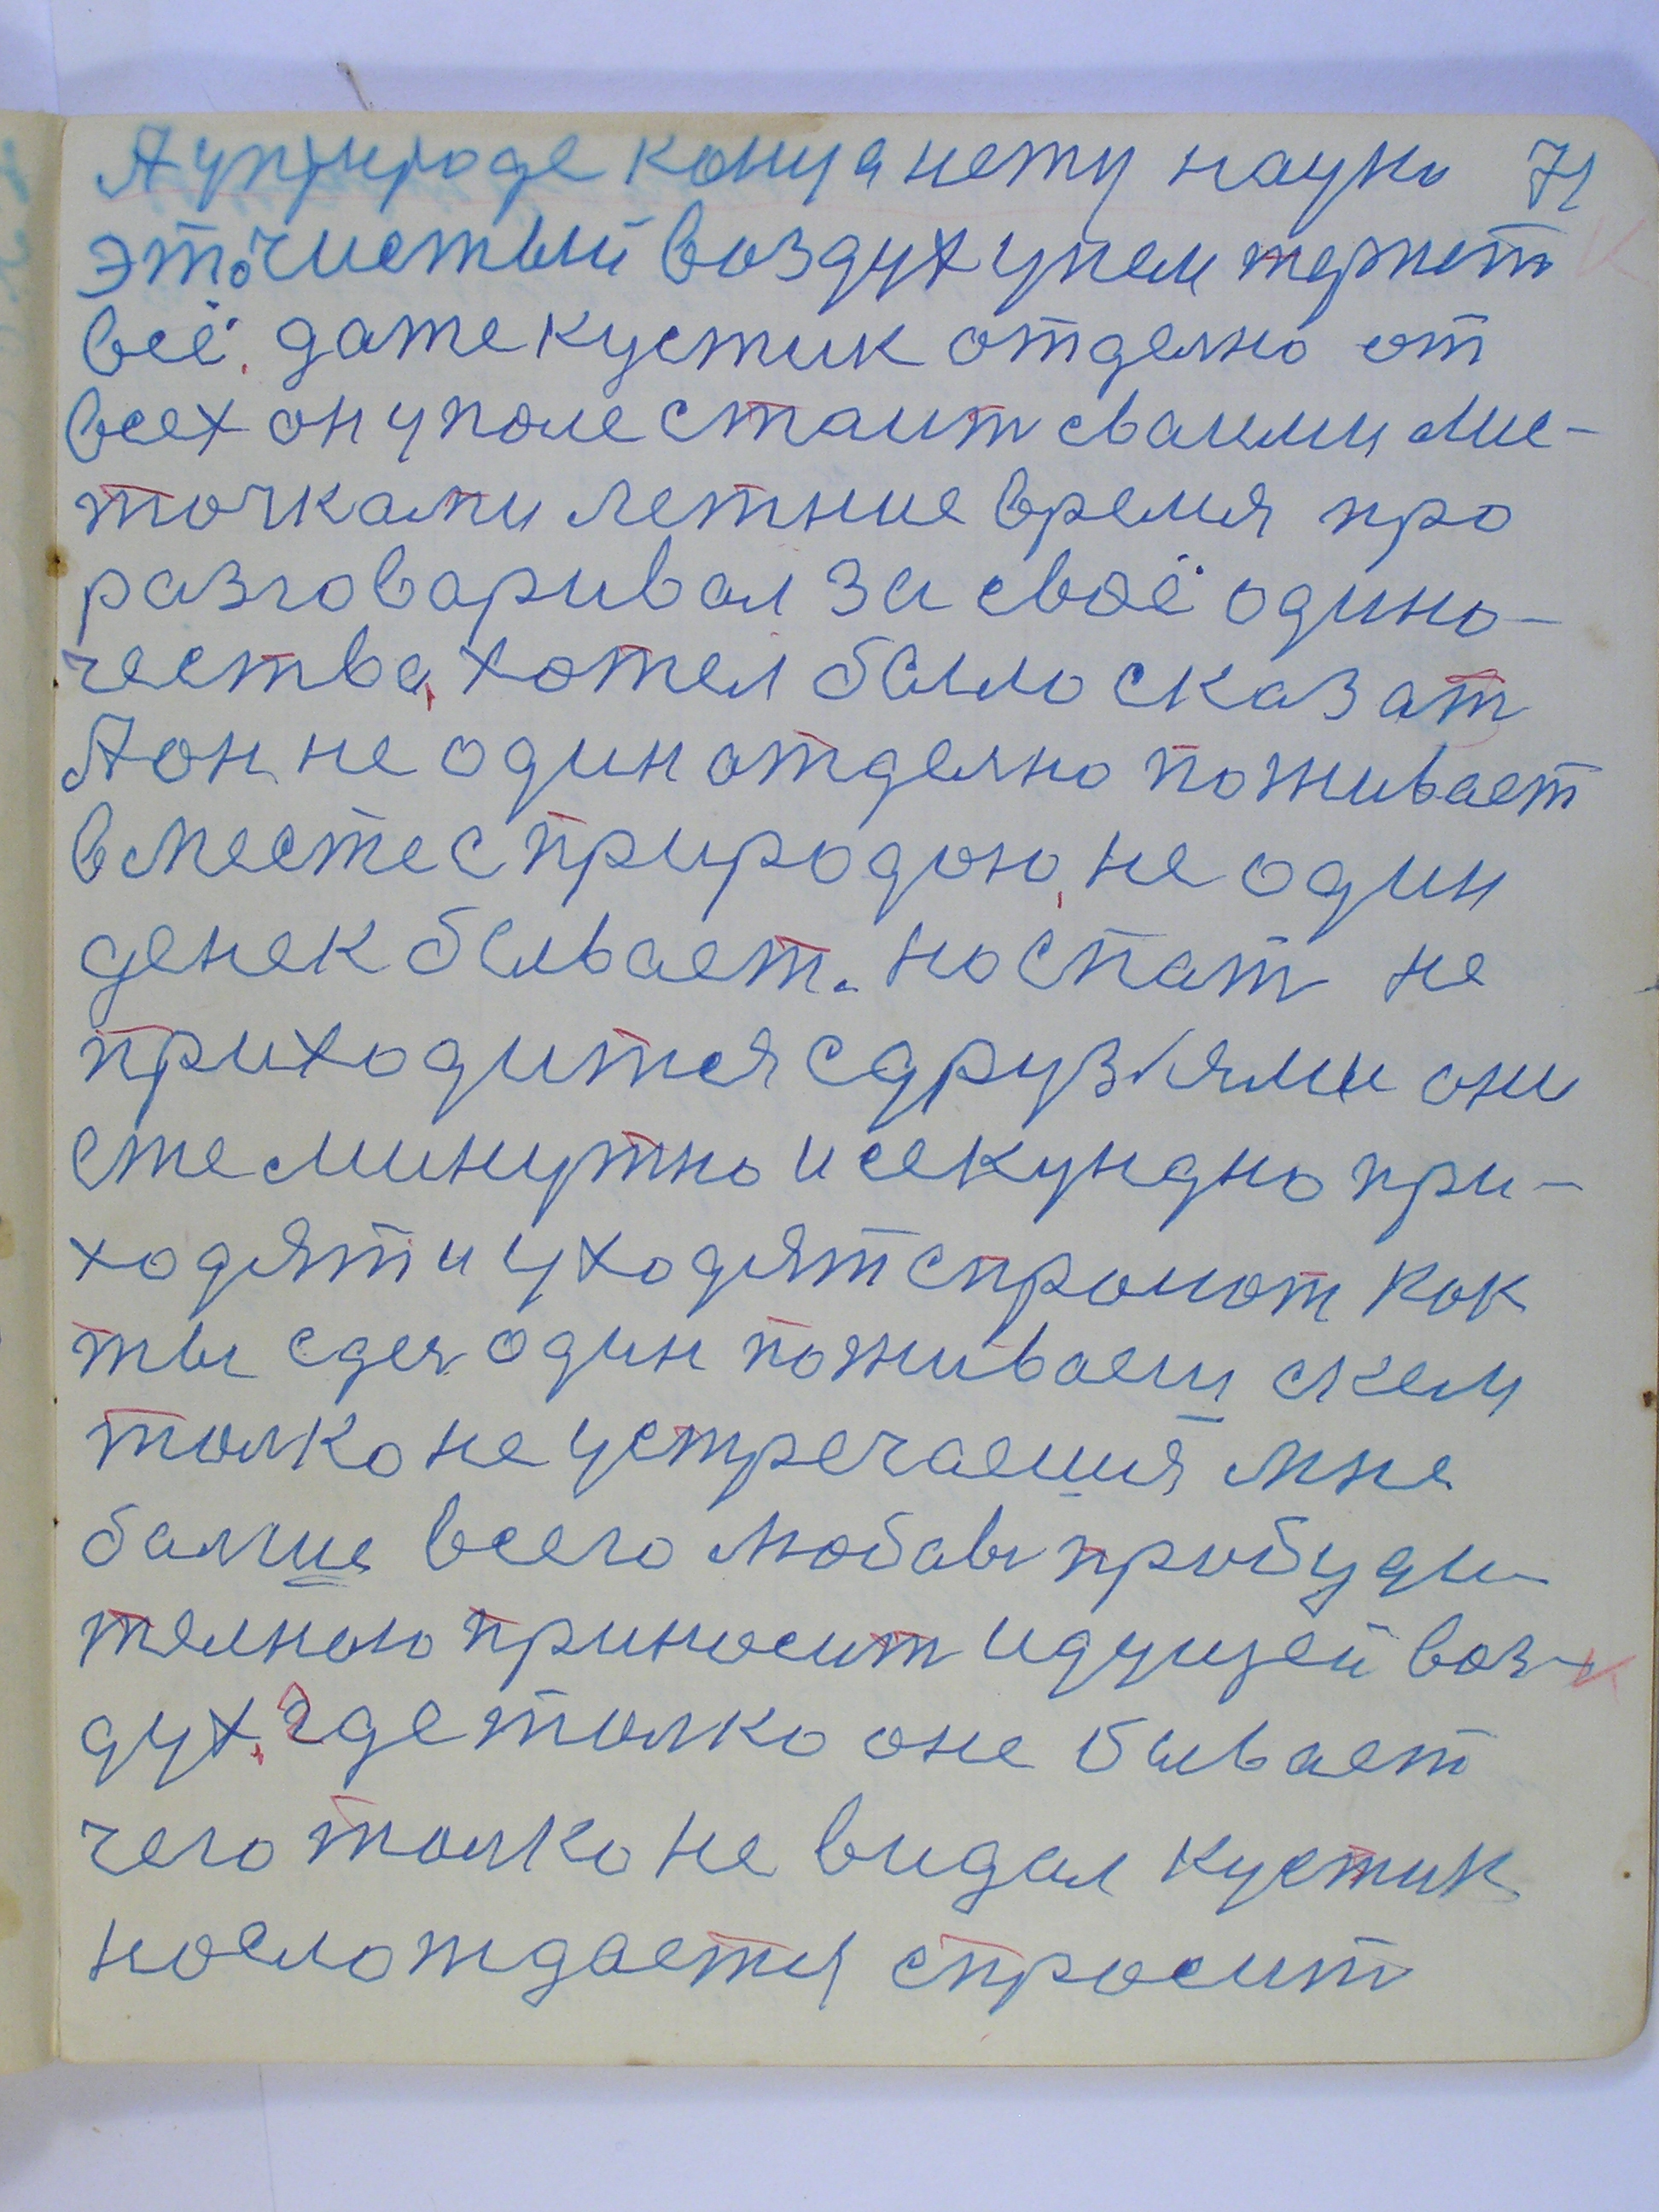 А уприроде конца нету науки 71
это чистый воздух унем держит
всё. даже кустик отделно от
всех он у поле стаит сваими лис-
точками летние время про
разговаривал за своё одино-
чества, хотел было сказат
А он не один отделно поживает
вместе с природою, не один
денек бывает. но спат не
приходится с друзями они
еже минутно и секундно при-
ходят и уходят спрошот как
ты сдес один поживаеш с кем
толко не устречаешся мне
балше всего любовь пробуди-
телною приносит идущей воз-
дух. где толко оне бывает
чего толко не видал кустик
наслождается спросит